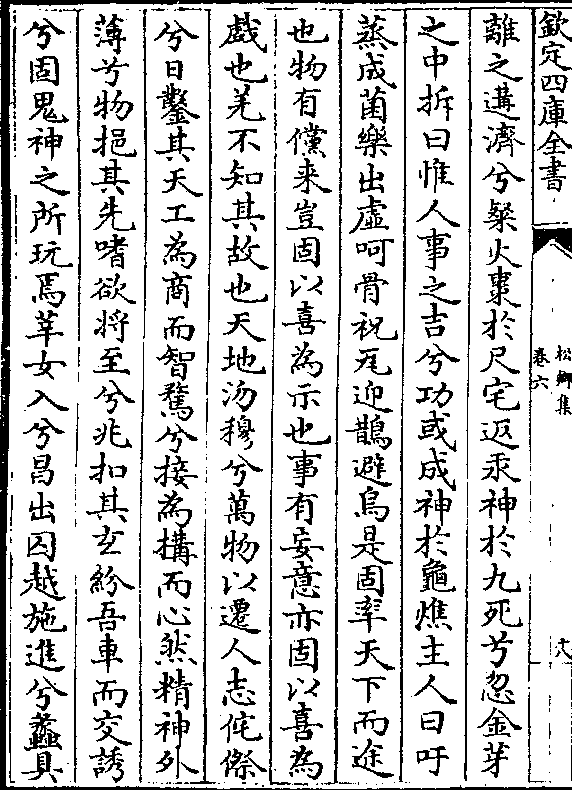 欽定四庫全書
松鄉集
卷六
離之遘濟兮粲火棗於尺宅返汞神於九死兮忽金芽
之中拆曰惟人事之吉兮功或成神於龜燋主人曰吁
蒸成菌樂出虛呵骨祝瓦迎鵲避烏是固率天下而途
也物有儻来豈固以喜為示也事有妄意亦固以喜為
戱也羌不知其故也天地沕穆兮萬物以遷人志侘傺
兮日鑿其天工為商而智騖兮接為搆而心然精神外
薄兮物挹其先嗜欲将至兮兆扣其玄紛吾車而交誘
兮固鬼神之所玩焉莘女入兮昌出囚越施進兮蠡具